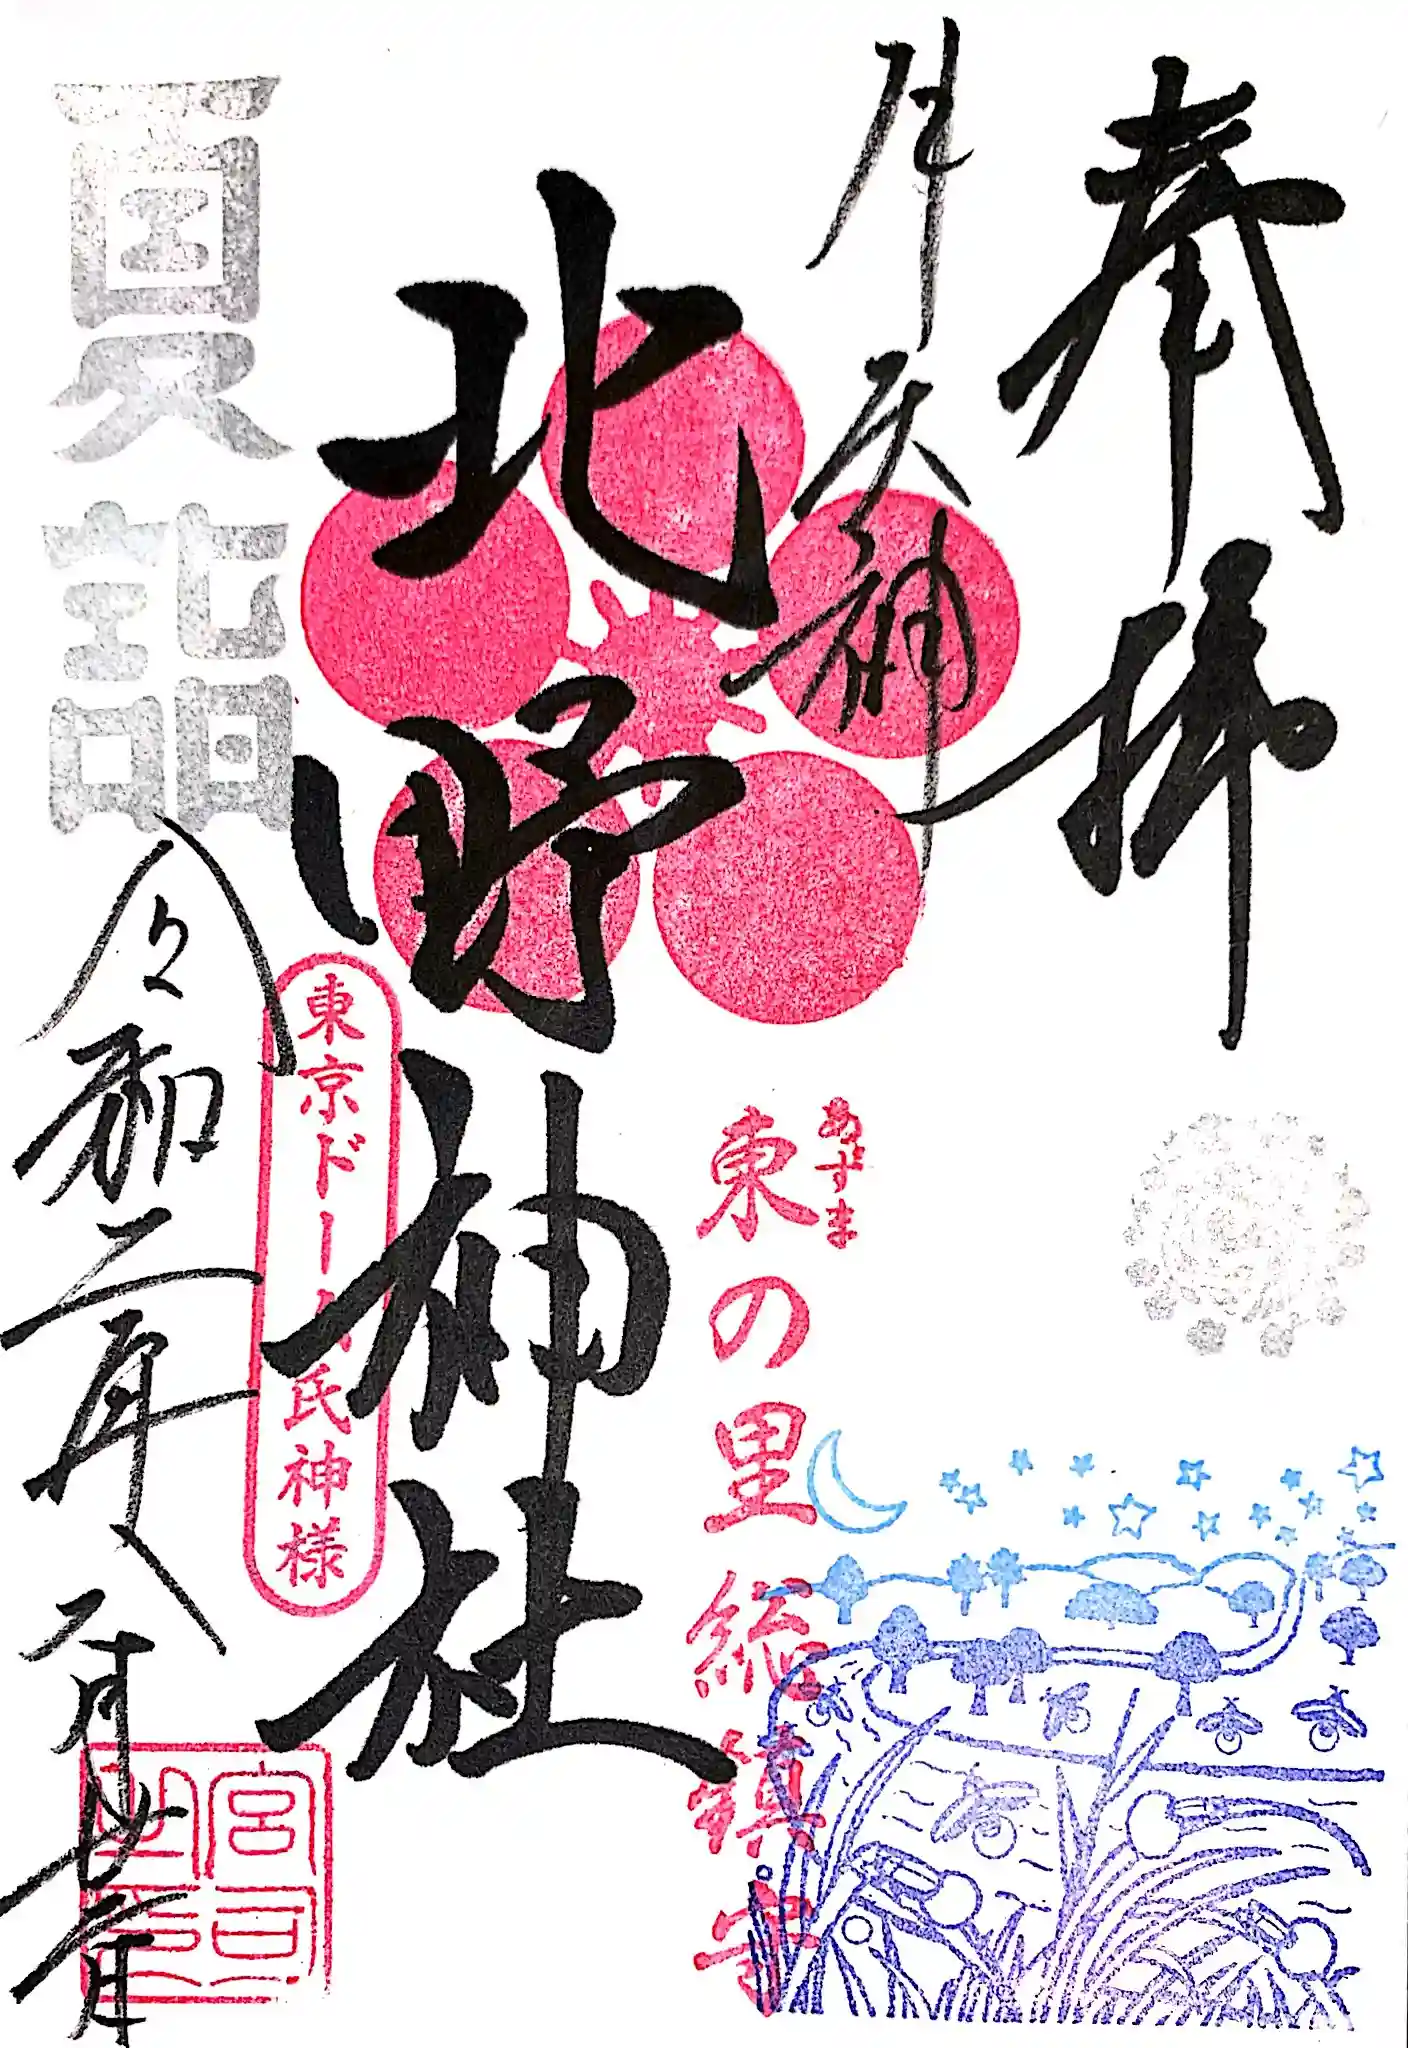 奉拝
牛天神
北野神社
あずま
東の里総鎮守
東京ドーム氏神様
夏詣
令和二年八月廿二日
宮司之印